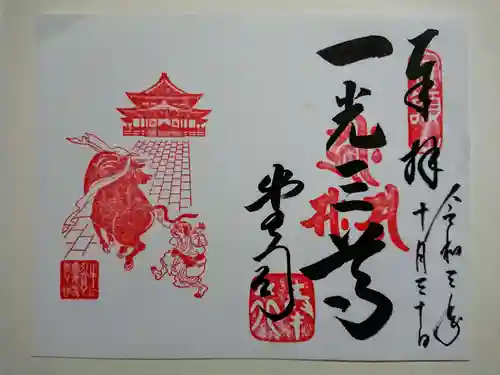 奉拝
令和三年
十月三十日
一光三尊